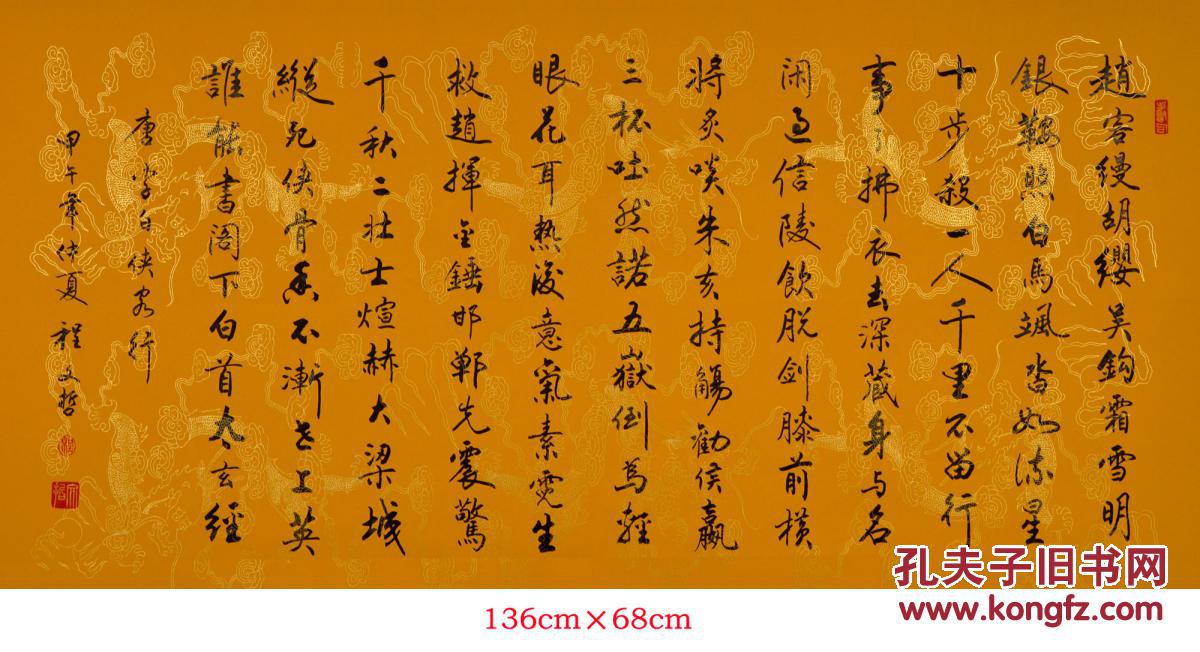 趙客縵胡纓吳鈎霜雪明
銀鞍照白馬颯沓如流星
十步殺一人千里不留行
事了拂衣去深藏身与名
闲過信陵飲脫劍膝前横
將炙啖朱亥持觴勸侯嬴
三杯吐然諾五嶽倒為輕
眼花耳熱後意氣素霓生
救趙揮金錘邯鄲先震驚
千秋二壯士煊赫大梁城
縱死俠骨香不漸世上英
誰能書閣下白首太玄經
唐李白俠客行
甲午年仲夏 程文哲
孔夫子旧书网
www.kongfz.com
136cm×68cm